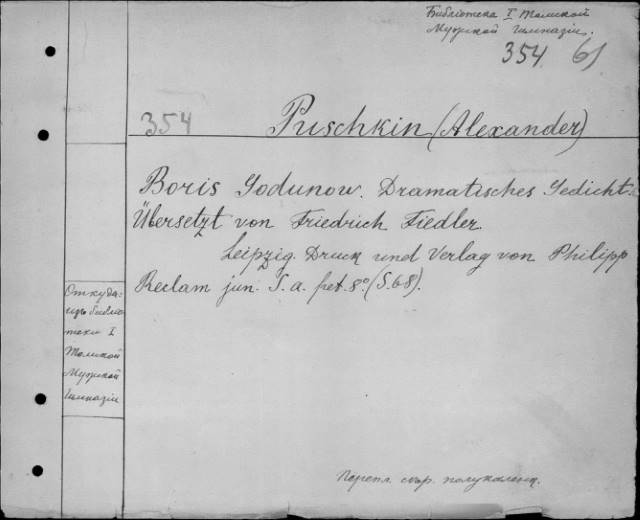 Библіотека I Томской
Мужской Гимназіи.
354 61
354 Puschkin (Alexander)
Boris Godunow. Dramatisches Gedicht.
Übersetzt von Friedrich Fiedler.
Leipzig. Druck und Verlag von Philipp
Reclam jun. S. a. pet. 8° (S. 68).
Откуда:
изъ библіо-
теки I
Томской
Мужской
Гимназіи
Перепл. сбор. полуколенк.